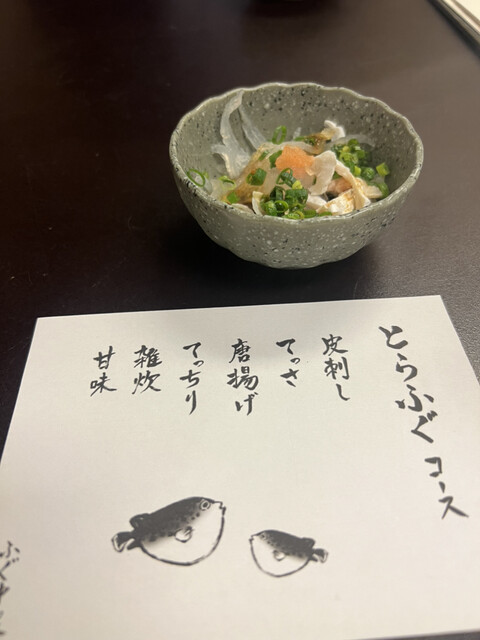 とらふぐコース
皮刺し
てっさ
唐揚げ
てっちり
雑炊
甘味
ふぐ